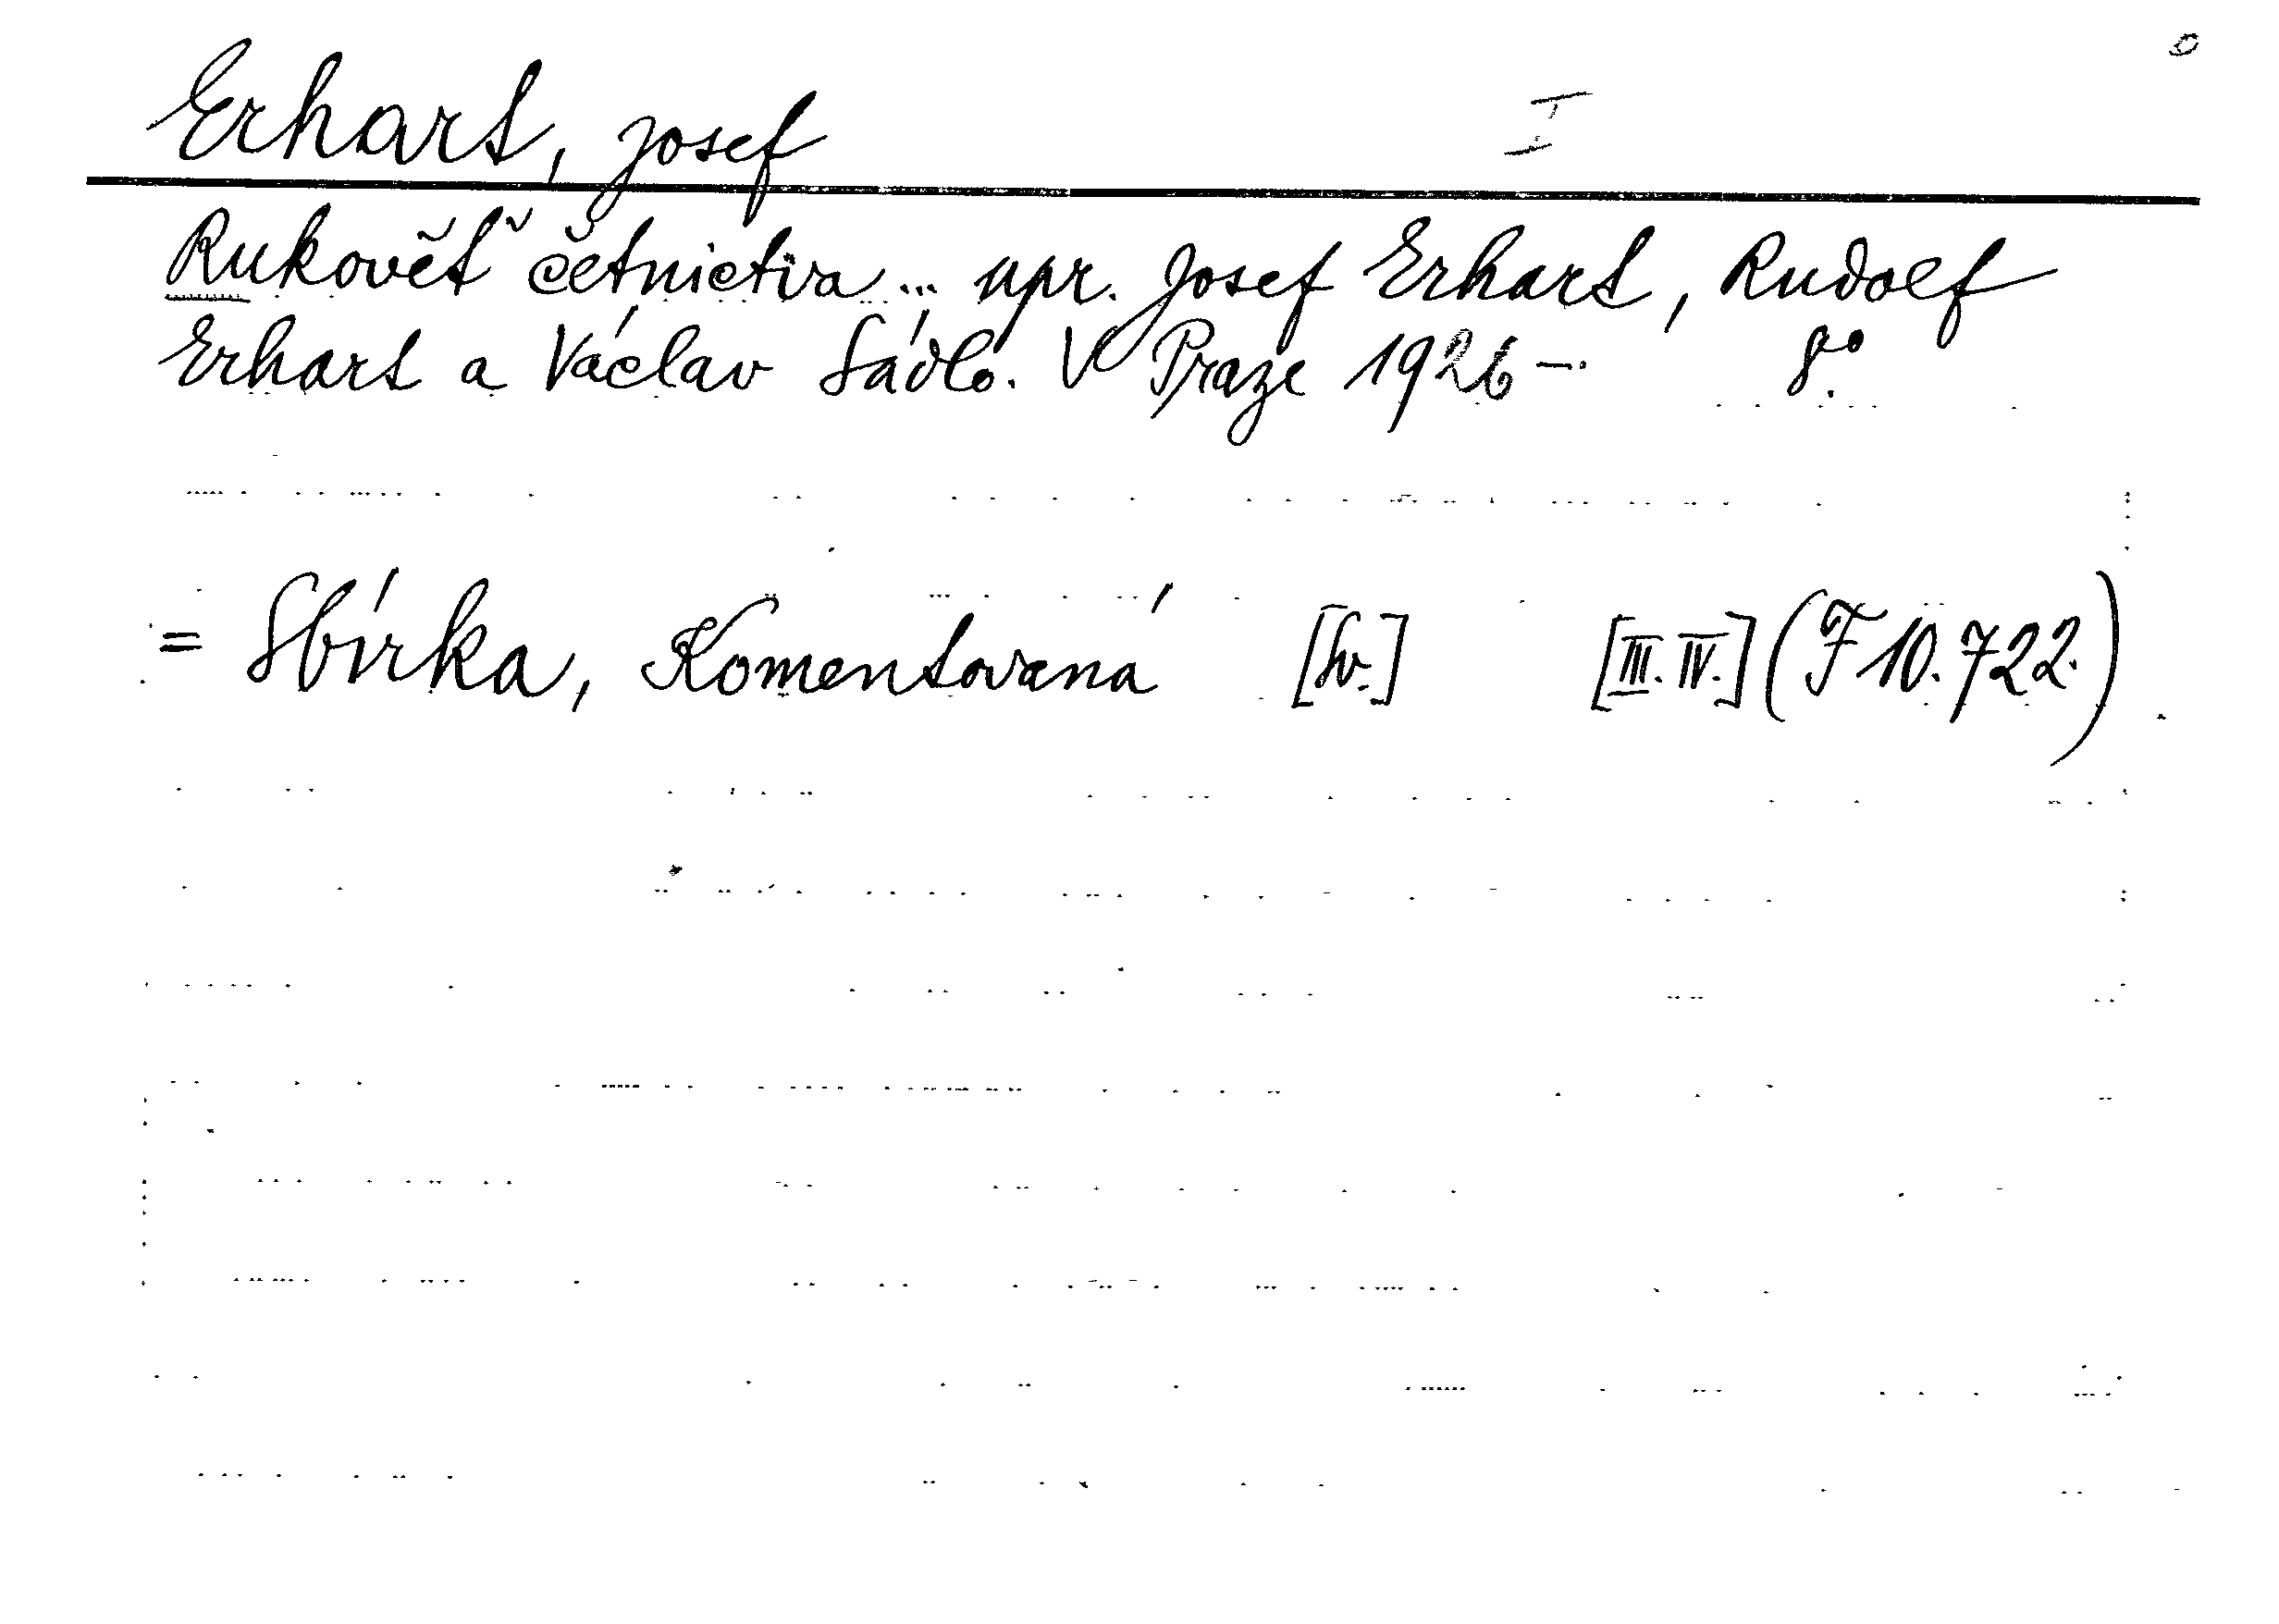 Erhart, Josef I
Rukověť četnictva ... upr. Josef Erhart, Rudolf
Erhart a Václav Sádlo. V Praze 1926 - 8°.
= Sbírka, Komentovaná [Sv.] [III. IV.] (F 10.722.)